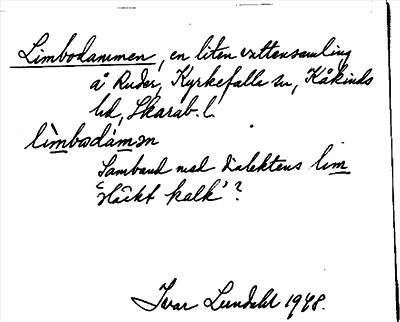 Limbodammen, en liten vattensamling
å Ruder, Kyrkefalla sn, Kåkinds
hd, Skarab. l.
lìmbodàmən
Samband med dialektens lim
'släckt kalk'?
Ivar Lundahl 1948.